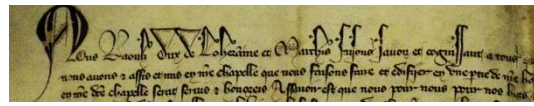 Nous Raoulz Dux de Loherainne et Marchis faisons savoir et cognissant a tous
nous avons & assis et mis en nre chapelle que nous faisons faire et edifier en une piece de nre
en nre dce chapelle serat servis & honorez Assavoir est que nous pour nous pour nos hoirs